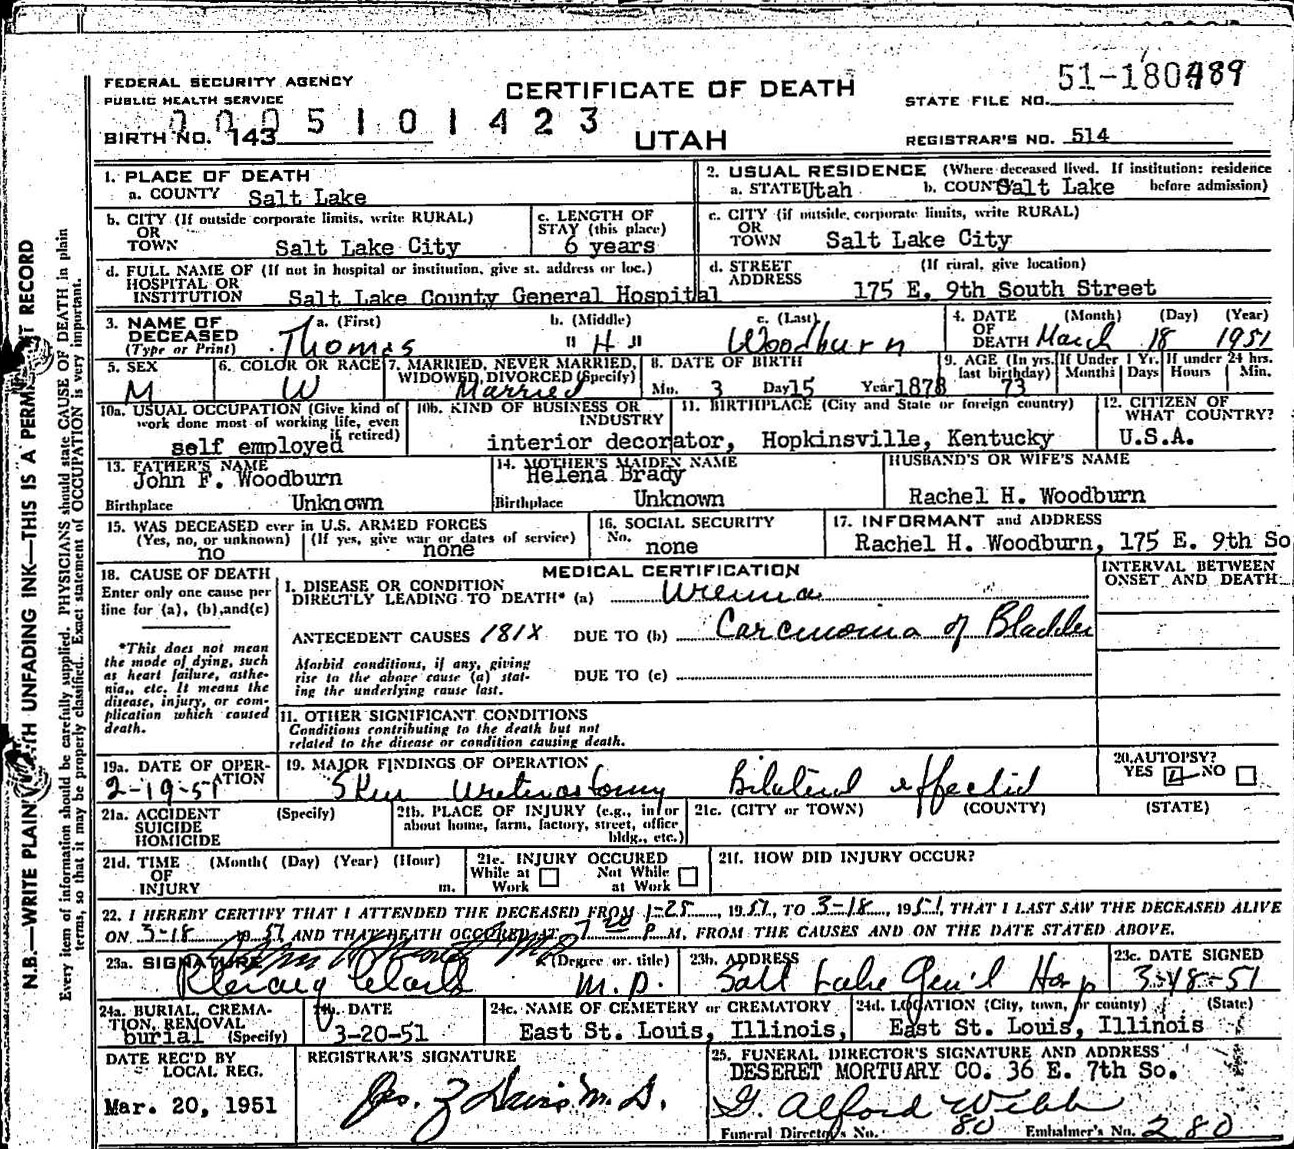 FEDERAL SECURITY AGENCY
PUBLIC HEALTH SERVICE
CERTIFICATE OF DEATH
STATE FILE NO. 51-180489
BIRTH NO. 143
0005101423
UTAH
REGISTRAR'S NO. 514
N.B.—WRITE PLAINLY WITH UNFADING INK—THIS IS A PERMANENT RECORD
Every item of information should be carefully supplied. PHYSICIANS should state CAUSE OF DEATH in plain
terms, so that it may be properly classified. Exact statement of OCCUPATION is very important.
1. PLACE OF DEATH
a. COUNTY Salt Lake
2. USUAL RESIDENCE (Where deceased lived. If institution: residence
a. STATE Utah b. COUNTY Salt Lake before admission)
b. CITY (If outside corporate limits, write RURAL)
OR
TOWN Salt Lake City
c. LENGTH OF
STAY (this place)
6 years
c. CITY (if outside corporate limits, write RURAL)
OR
TOWN Salt Lake City
d. FULL NAME OF (If not in hospital or institution, give st. address or loc.)
HOSPITAL OR
INSTITUTION Salt Lake County General Hospital
d. STREET (If rural, give location)
ADDRESS 175 E. 9th South Street
3. NAME OF a. (First) b. (Middle) c. (Last)
DECEASED
(Type or Print) Thomas "H" Woodburn
4. DATE (Month) (Day) (Year)
OF
DEATH March 18 1951
5. SEX
M
6. COLOR OR RACE
W
7. MARRIED, NEVER MARRIED,
WIDOWED, DIVORCED (Specify)
Married
8. DATE OF BIRTH
Mo. 3 Day 15 Year 1878
9. AGE (In yrs.
last birthday)
73
If Under 1 Yr.
Months Days
If under 24 hrs.
Hours Min.
10a. USUAL OCCUPATION (Give kind of
work done most of working life, even
if retired)
self employed
10b. KIND OF BUSINESS OR
INDUSTRY
interior decorator,
11. BIRTHPLACE (City and State or foreign country)
Hopkinsville, Kentucky
12. CITIZEN OF
WHAT COUNTRY?
U.S.A.
13. FATHER'S NAME
John F. Woodburn
Birthplace Unknown
14. MOTHER'S MAIDEN NAME
Helena Brady
Birthplace Unknown
HUSBAND'S OR WIFE'S NAME
Rachel H. Woodburn
15. WAS DECEASED ever in U.S. ARMED FORCES
(Yes, no, or unknown) (If yes, give war or dates of service)
no none
16. SOCIAL SECURITY
No. none
17. INFORMANT and ADDRESS
Rachel H. Woodburn, 175 E. 9th So
18. CAUSE OF DEATH
Enter only one cause per
line for (a), (b), and (c)
*This does not mean
the mode of dying, such
as heart failure, asthe-
nia, etc. It means the
disease, injury, or com-
plication which caused
death.
MEDICAL CERTIFICATION
INTERVAL BETWEEN
ONSET AND DEATH
I. DISEASE OR CONDITION
DIRECTLY LEADING TO DEATH* (a) Uremia
ANTECEDENT CAUSES 181X DUE TO (b) Carcinoma of Bladder
Morbid conditions, if any, giving
rise to the above cause (a) stat-
ing the underlying cause last.
DUE TO (c)
11. OTHER SIGNIFICANT CONDITIONS
Conditions contributing to the death but not
related to the disease or condition causing death.
19a. DATE OF OPER-
ATION
2-19-51
19. MAJOR FINDINGS OF OPERATION
Skin ureterostomy Bilateral effected
20. AUTOPSY?
YES NO
21a. ACCIDENT (Specify)
SUICIDE
HOMICIDE
21b. PLACE OF INJURY (e.g., in or
about home, farm, factory, street, office
bldg., etc.)
21c. (CITY or TOWN) (COUNTY) (STATE)
21d. TIME (Month( (Day) (Year) (Hour)
OF
INJURY m.
21e. INJURY OCCURED
While at Not While
Work at Work
21f. HOW DID INJURY OCCUR?
22. I HEREBY CERTIFY THAT I ATTENDED THE DECEASED FROM 1-25, 1951, TO 3-18, 1951, THAT I LAST SAW THE DECEASED ALIVE
ON 3-18 1951 AND THAT DEATH OCCURED AT 7 20 P. M., FROM THE CAUSES AND ON THE DATE STATED ABOVE.
23a. SIGNATURE (Degree or title)
M.D.
23b. ADDRESS
Salt Lake Gen'l Hosp
23c. DATE SIGNED
3-18-51
24a. BURIAL, CREMA-
TION, REMOVAL
burial (Specify)
24b. DATE
3-20-51
24c. NAME OF CEMETERY or CREMATORY
East St. Louis, Illinois,
24d. LOCATION (City, town, or county) (State)
East St. Louis, Illinois
DATE REC'D BY
LOCAL REG.
Mar. 20, 1951
REGISTRAR'S SIGNATURE
25. FUNERAL DIRECTOR'S SIGNATURE AND ADDRESS
DESERET MORTUARY CO. 36 E. 7th So.
G. Alford Webb
Funeral Director's No. 80 Embalmer's No. 280